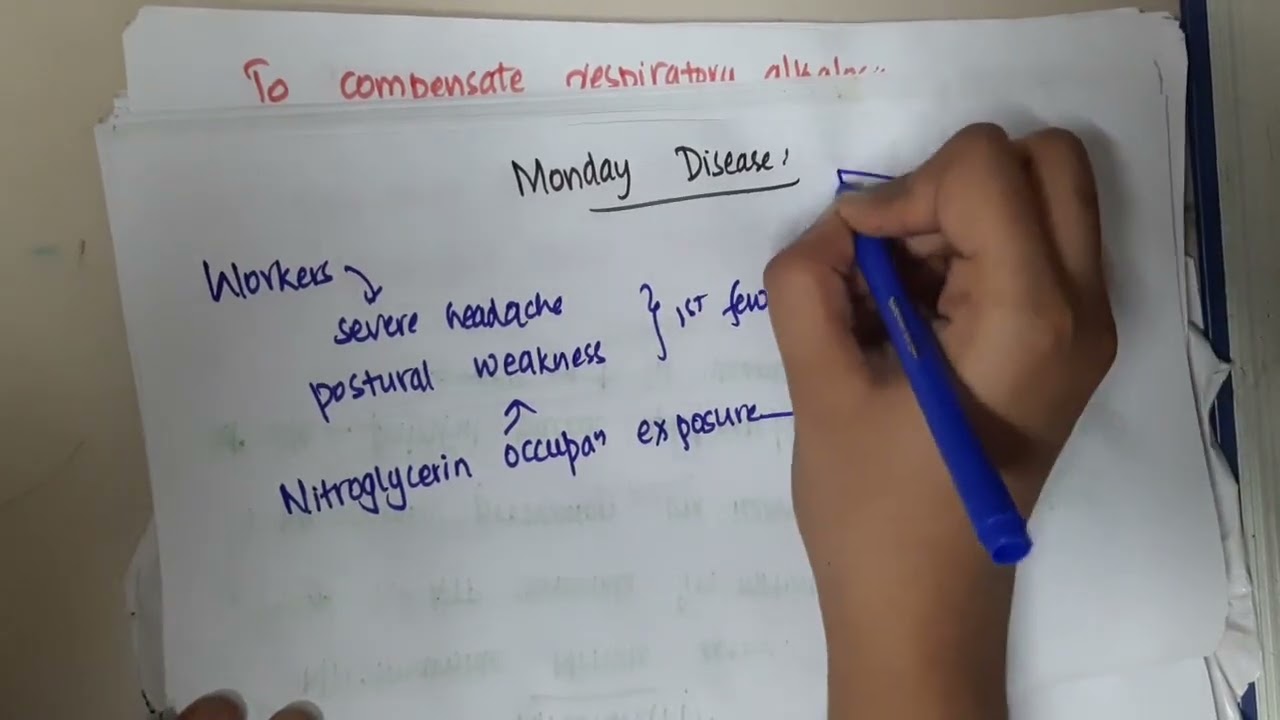 To compensate respiratory
Monday Disease:
Workers
severe headache
postural weakness } 1st few
Nitroglycerin occupan exposure